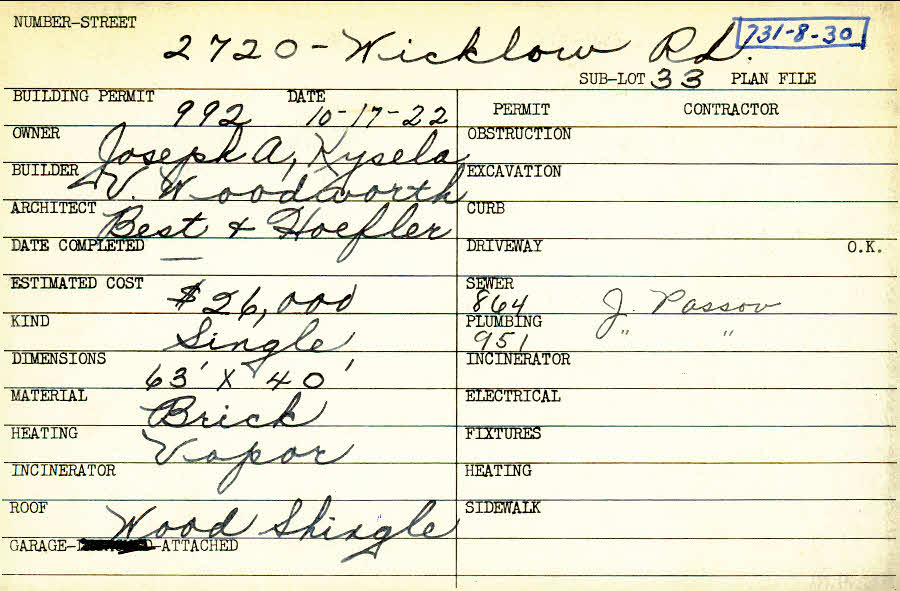 NUMBER-STREET
2720-Wicklow Rd. 731-8-30
SUB-LOT 33 PLAN FILE
BUILDING PERMIT 992 DATE 10-17-22
PERMIT CONTRACTOR
OWNER Joseph A, Kysela
OBSTRUCTION
BUILDER V. Woodworth
EXCAVATION
ARCHITECT Best + Hoefler
CURB
DATE COMPLETED —
DRIVEWAY O.K.
ESTIMATED COST $26,000
SEWER 864 J. Passov
KIND Single
PLUMBING 951 " "
DIMENSIONS 63' X 40'
INCINERATOR
MATERIAL Brick
ELECTRICAL
HEATING Vapor
FIXTURES
INCINERATOR
HEATING
ROOF Wood Shingle
SIDEWALK
GARAGE- -ATTACHED